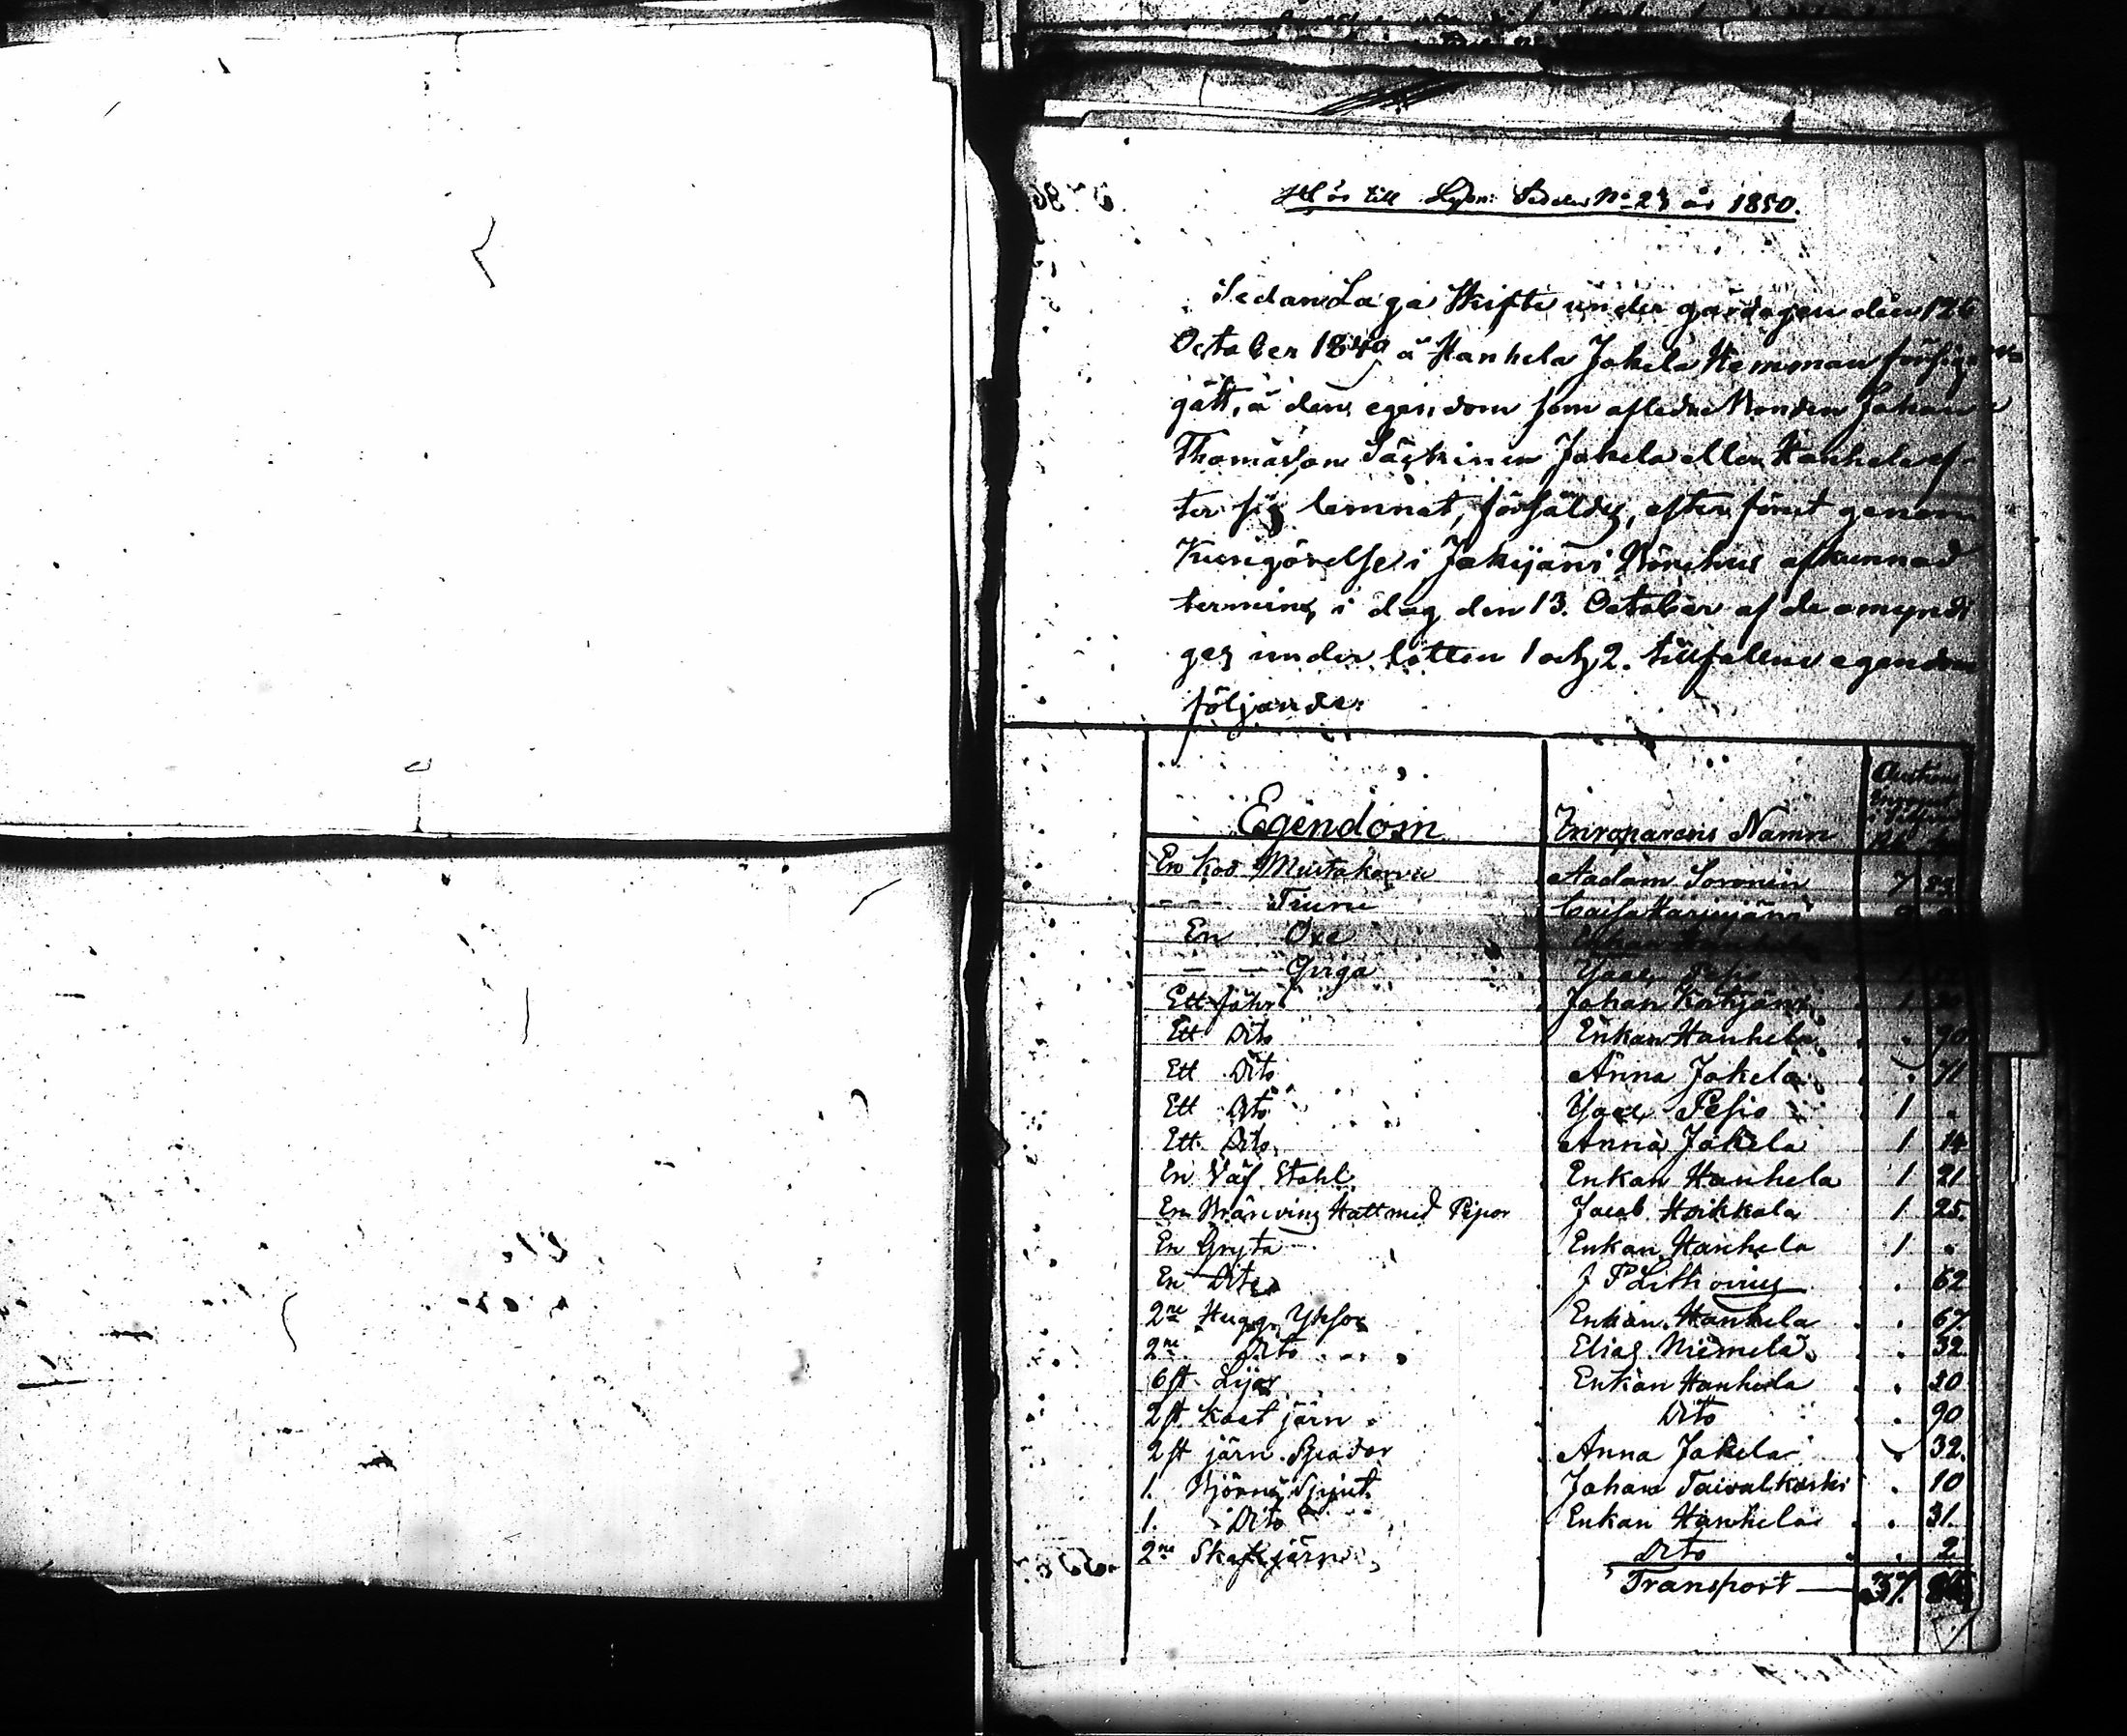 Hör till Lysn: Sedeln No 23 år 1850.
Sedan Laga Skifte under gårdagen den 12te
October 1849 å Hanhela Jokela Hemman försig-
gått, å den egendom som aflidne Bonden Johan
Thomasson Säskinen Jokela eller Hanhela ef-
ter sig lemnat, försåldes, efter förut genom
Kungörelse i Jokijärvi Bönehus afkunnad
termin, i dag den 13. October af de omyndi
ges under lotten 1 och 2. tillfallne egendom
följande:
Egendom Inroparens Namn Auctions
En Ko Mustakorva Aadam Soronen 7
Caisa
En Oxe Enkan Hanhela
— — Qviga Pesio
Ett fåhr Johan 1
Ett Dito Enkan Hanhela . 90
Ett Dito Anna Jokela . 71
Ett Dito Pesio 1 .
Ett Dito Anna Jokela 1 14
En Väf Stohl Enkan Hanhela 1 21
En Bränvins Hatt med Pipor Jacob Hoikkala 1 25.
En Gryta Enkan Hanhela 1 .
En Dito J P Lithovius . 62
2ne Hugg Yxor Enkan Hanhela . 67
2ne Dito Elias Niemelä . 32
6 st Lijar Enkan Hanhela . 30
2 st kast järn Dito . 90
2 st järn Spador Anna Jokela . 32.
1. Björns Spjut Johan Taivalkoski . 10
1. Dito Enkan Hanhela . 31.
2ne Skafjärn Dito . 2
Transport — 37.